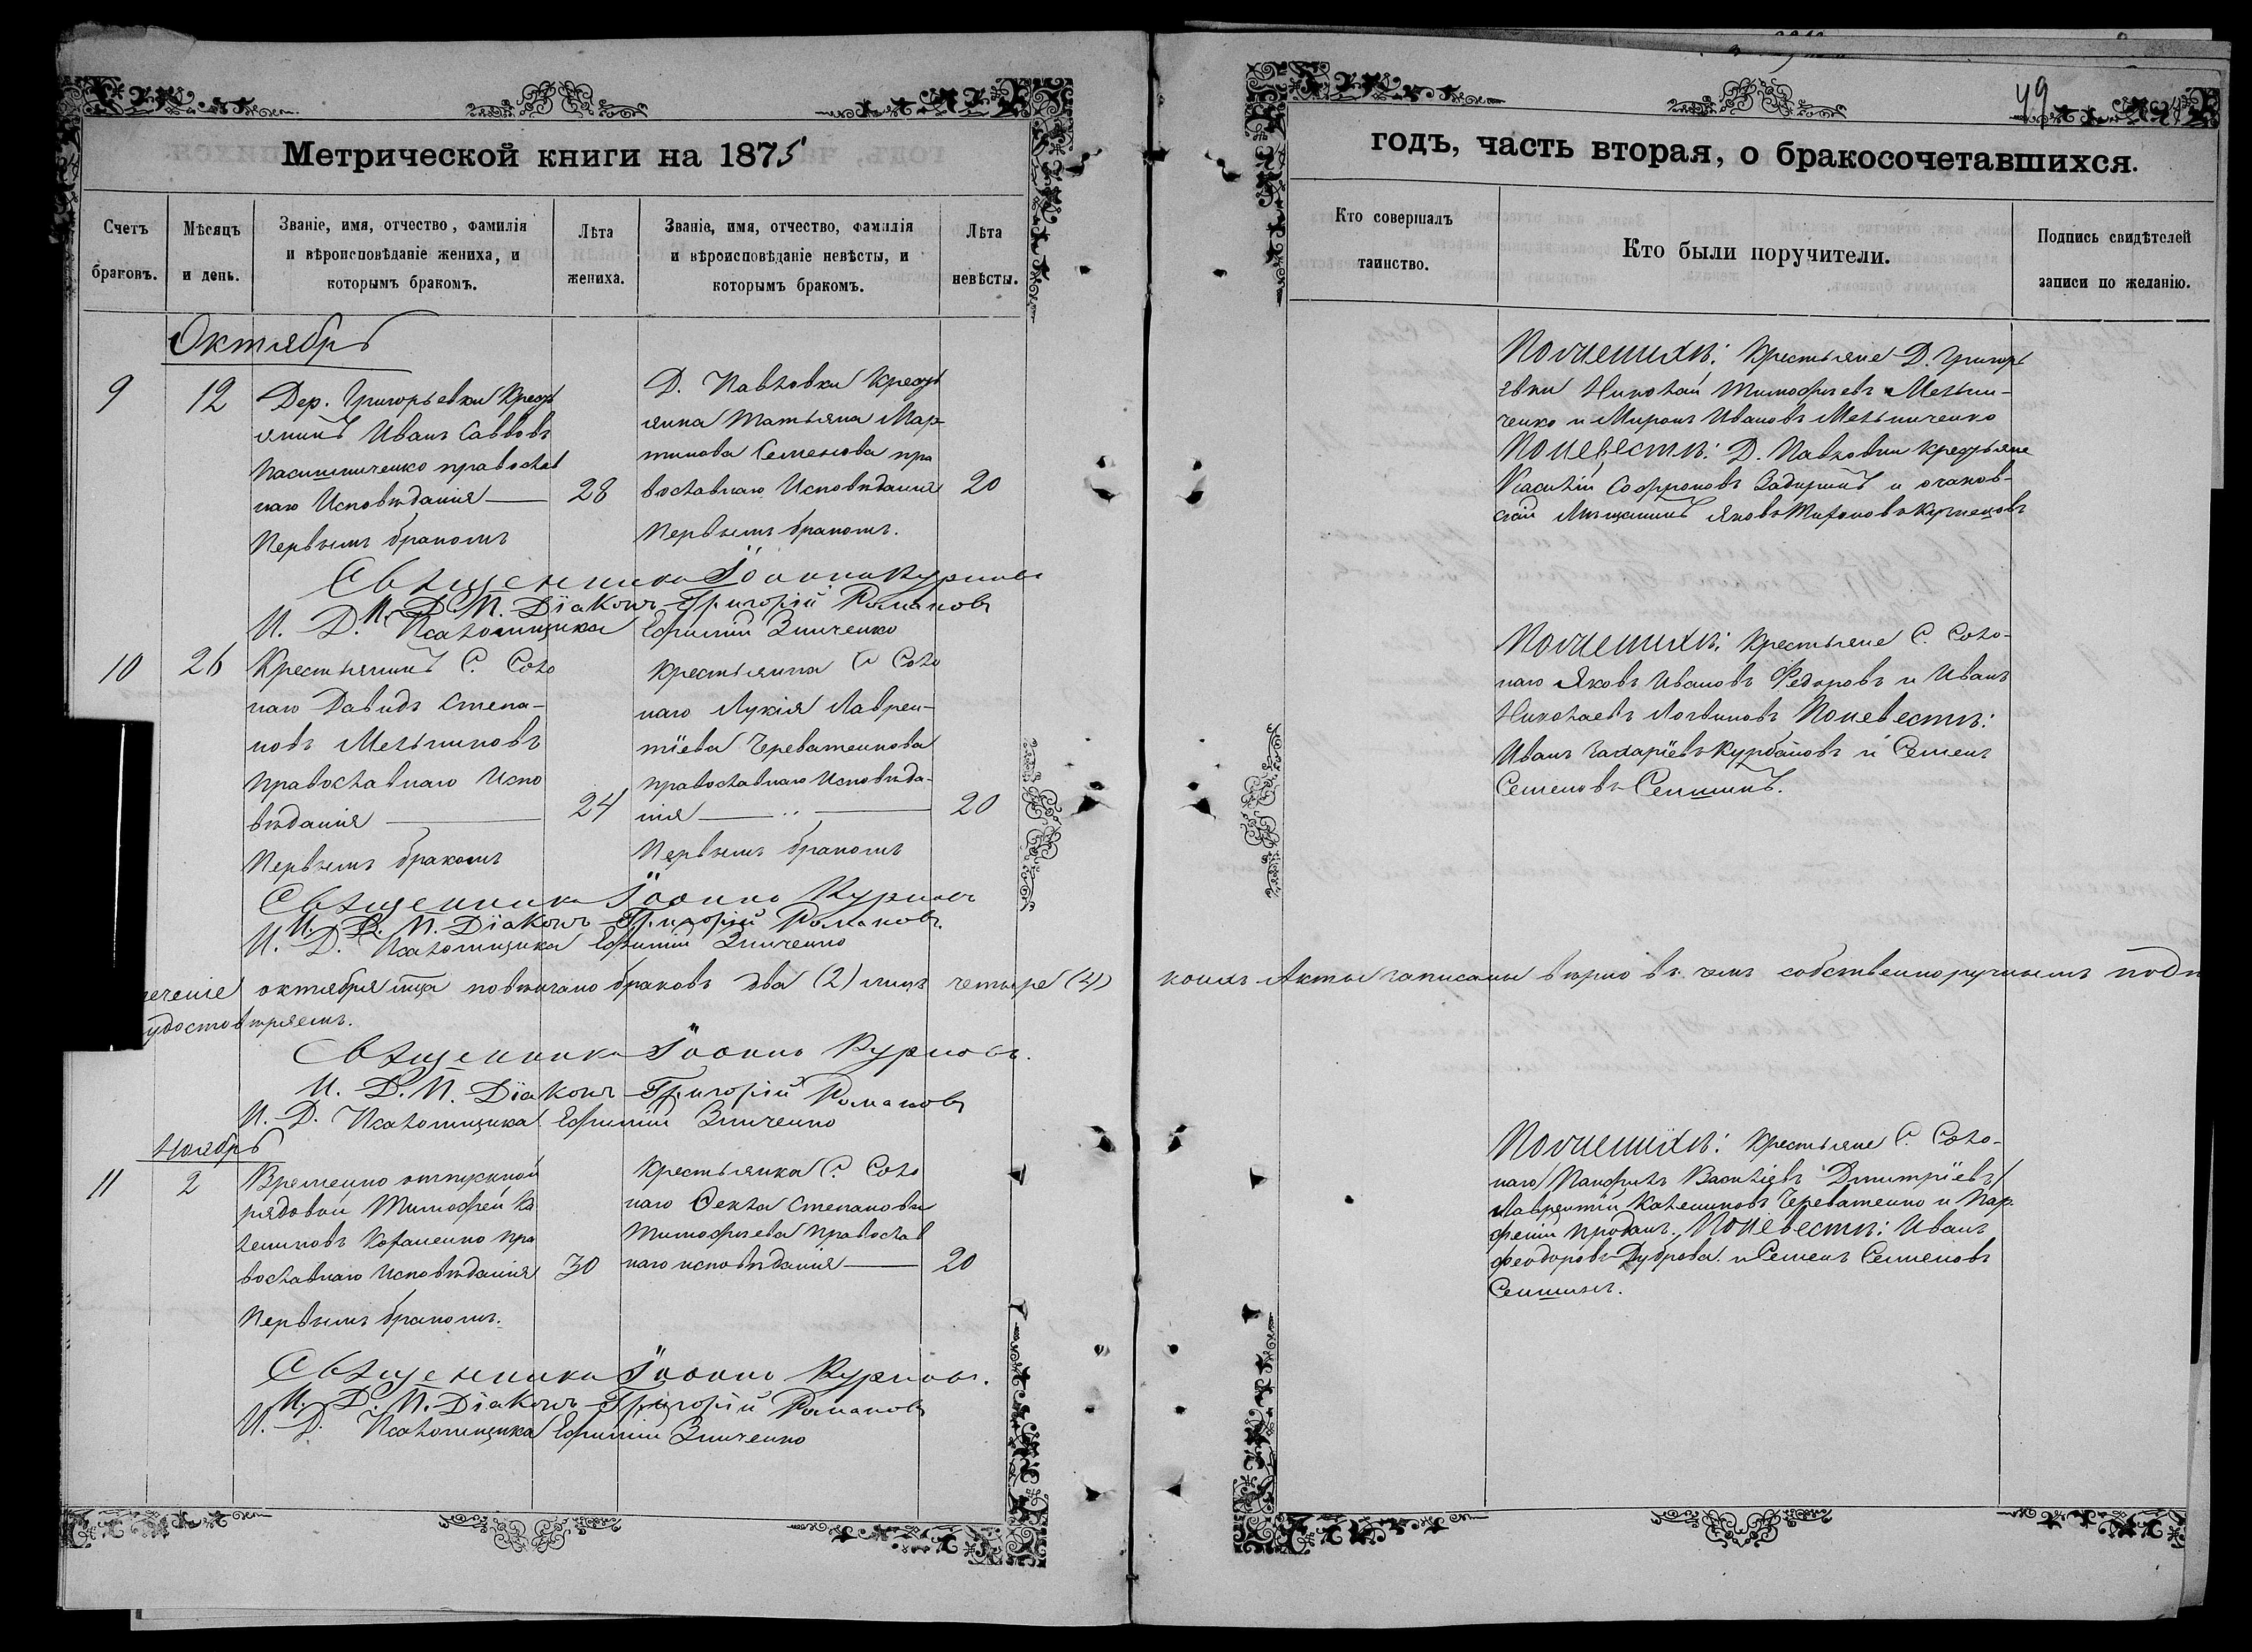 49
Метрической книги на 1875
годъ, часть вторая, о бракосочетавшихся.
Счетъ браковъ.
Мѣсяцъ и день.
Званіе, имя, отчество, фамилія
и вѣроисповѣданіе жениха, и
которымъ бракомъ.
Лѣта жениха.
Званіе, имя, отчество, фамилія
и вѣроисповѣданіе невѣсты, и
которымъ бракомъ.
Лѣта невѣсты.
Кто совершалъ таинство.
Кто были поручители.
Подпись свидѣтелей
записи по желанію.
Октябрь
9
12
Дер. Григорьевки Крест
янинъ Иванъ Саввовъ
православ
наго Исповѣданія
28
Первымъ бракомъ
Д. Павловки крест
янка Татьяна Мар-
тинова Семенова пра
вославнаго Исповѣданія
20
Первымъ бракомъ.
Поженихѣ: Крестьяне Д. Григорь
евки Николай Тимофѣевъ Мельни-
ченко и Миронъ Ивановъ Мельниченко
Поневестѣ: Д. Павловки крестьяне
Василій Софроновъ и очаков-
скій Мѣщанинъ Яковъ Кузнецовъ
Священникъ Іоаннъ
И. Д. П. Діаконъ Григорій Романовъ
И. Д. Псаломщика Ефимій Зинченко
10
26
Крестьянинъ С. Соло
наго Давидъ Степа-
новъ Мельниковъ
православнаго Испо
вѣданія
24
Первымъ бракомъ
Крестьянка С Соло
наго Лукія Лаврен-
тіева Череватенкова
православнаго Исповѣда-
нія
20
Первымъ бракомъ
Поженихѣ: Крестьяне С. Соло-
наго Яковъ Ивановъ Федоровъ и Иванъ
Николаевъ Логвиновъ Поневестѣ:
Иванъ Захаріевъ Курбановъ и Семенъ
Семеновъ
Священникъ Іоаннъ
И. Д. П. Діаконъ Григорій Романовъ.
И. Д. Псаломщика Ефимій Зинченко
октября мца повѣнчано браковъ два (2) лицъ четыре (4) коихъ Акты записаны вѣрно въ чемъ собственноручнымъ подп
удостовѣряемъ.
Священникъ Іоаннъ
И. Д. П. Діаконъ Григорій Романовъ
И. Д. Псаломщика Ефимій Зинченко
Ноябрь
11
2
Временно отпускной
рядовой Тимофей Ка
лениковъ пра
вославнаго Исповѣданія
30
Первымъ бракомъ.
Крестьянка С. Соло
наго Фекла Степановна
Тимофѣева православ
наго исповѣданія
20
Поженихѣ: Крестьяне С. Соло-
наго Панфилъ Василіевъ Дмитріевъ
Лаврентій Калениковъ Череватенко и Пар-
феній Проданъ. Поневестѣ: Иванъ
Феодоровъ Дуброва и Семенъ Семеновъ
Священникъ Іоаннъ
И. Д. П. Діаконъ Григорій Романовъ
И. Д. Псаломщика Ефимій Зинченко